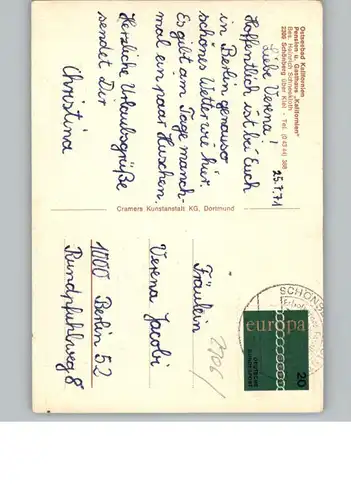 Ostseebad Kalifornien
Pension u. Gasthaus „Kalifornien"
Bes. Heinrich Schneekloth
2306 Schönberg über Kiel - Tel. (0 43 44) 368
25.7.71
Liebe Verena!
Hoffentlich ist bei Euch
in Berlin genauso
schönes Wetter wie hier.
Es gibt am Tage manch-
mal ein paar Huschen.
Herzliche Urlaubsgrüße
sendet Dir
Christina
Cramers Kunstanstalt KG, Dortmund
Fräulein
Verena Jacobi
1000 Berlin 52
Rundpfuhlweg 8
SCHÖNB
europa
DEUTSCHE
BUNDESPOST
20